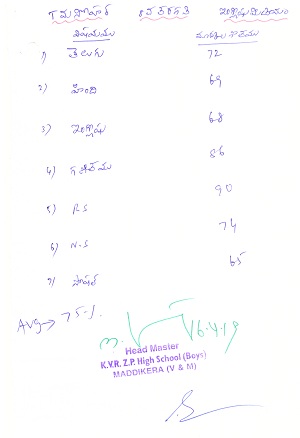 T మనోహర్ 8వ తరగతి ఇంగ్లీషు మీడియం
విషయము మార్కులశాతము
1) తెలుగు 72
2) హింది 69
3) ఇంగ్లీషు 68
4) గణితము 86
5) P.S 90
6) N.S 74
7) సోషల్ 65
AVG → 75%
16.4.19
Head Master
K.V.R. Z.P. High School (Boys)
MADDIKERA (V & M)